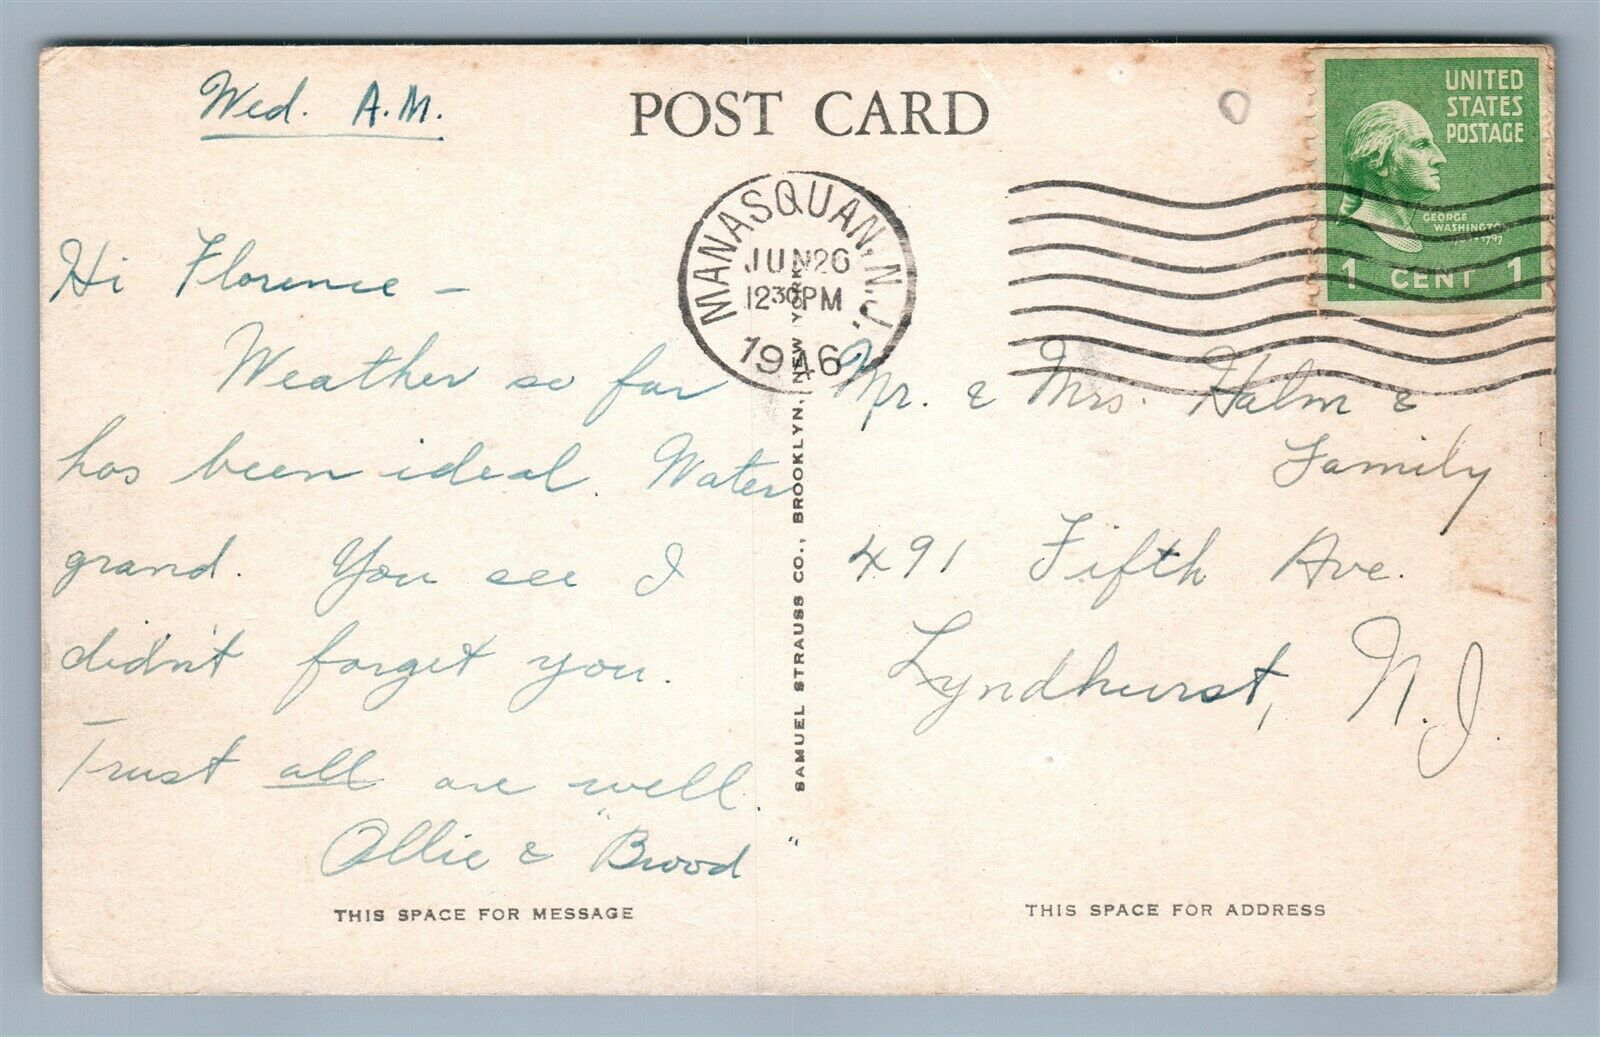 Wed. A.M.
POST CARD
UNITED
STATES
POSTAGE
GEORGE
WASHINGTON
1 CENT 1
MANASQUAN, N.J.
JUN 26
12 30 PM
1946
Hi Florence -
Weather so far
has been ideal. Water
grand. You see I
didn't forget you.
Trust all are well.
Ollie & "Brood"
THIS SPACE FOR MESSAGE
SAMUEL STRAUSS CO., BROOKLYN, NEW YORK
Mr. & Mrs. Halm &
Family
491 Fifth Ave.
Lyndhurst, N.J.
THIS SPACE FOR ADDRESS